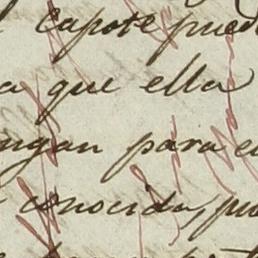 capote pued
a que ella
ngan para e
conocida, pu